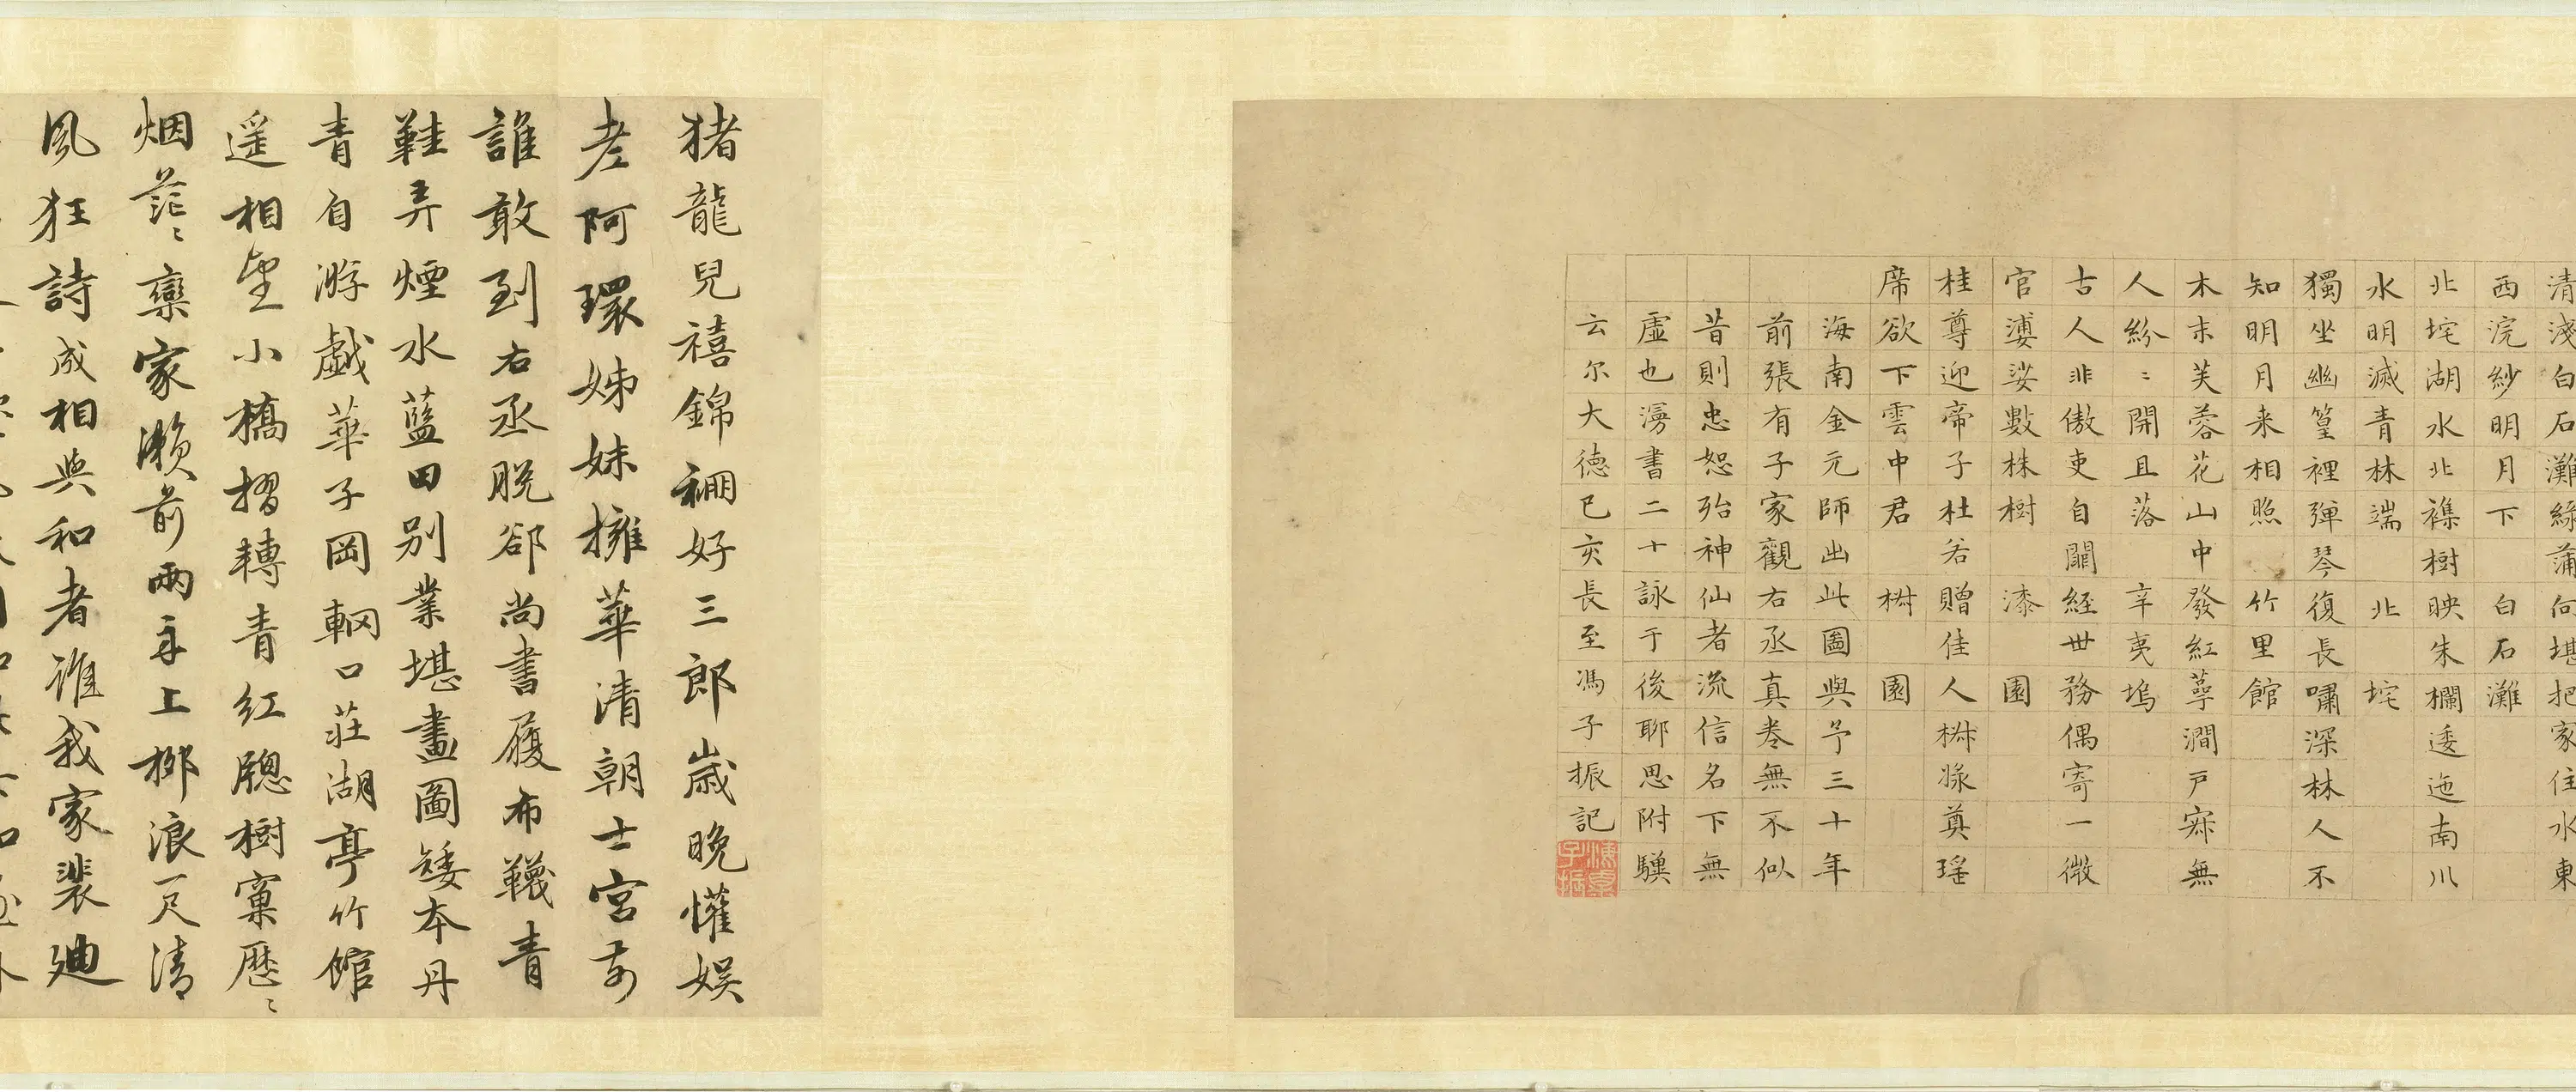 清淺白石灘綠蒲向堪把家住水東
西浣紗明月下　白石灘
北垞湖水北襍樹映朱欄逶迤南川
水明滅青林端　北垞
獨坐幽篁裡彈琴復長嘯深林人不
知明月来相照　竹里館
木末芙蓉花山中發紅萼澗戸寂無
人紛〻開且落　辛夷塢
古人非傲吏自闕經世務偶寄一微
官婆娑數株樹　漆園
桂尊迎帝子杜若贈佳人椒漿奠瑤
席欲下雲中君　椒園
海南金元師出此圖與予三十年
前張有子家觀右丞真卷無不似
昔則忠恕殆神仙者流信名下無
虛也漫書二十詠于後聊思附驥
云尓大德己亥長至馮子振記
猪龍兒禧錦裯好三郎歲晚懽娛
老阿環姊妹擁華清朝士宮前
誰敢到右丞脫卻尚書履布韈青
鞋弄煙水藍田别業堪畫圖矮本丹
青自游戲華子岡輞口莊湖亭竹館
遥相望小橋摺轉青紅隱樹窠歷〻
烟茫〻欒家瀨前兩舟上柳浪一尺清
風狂詩成相與和者誰我家裴迪